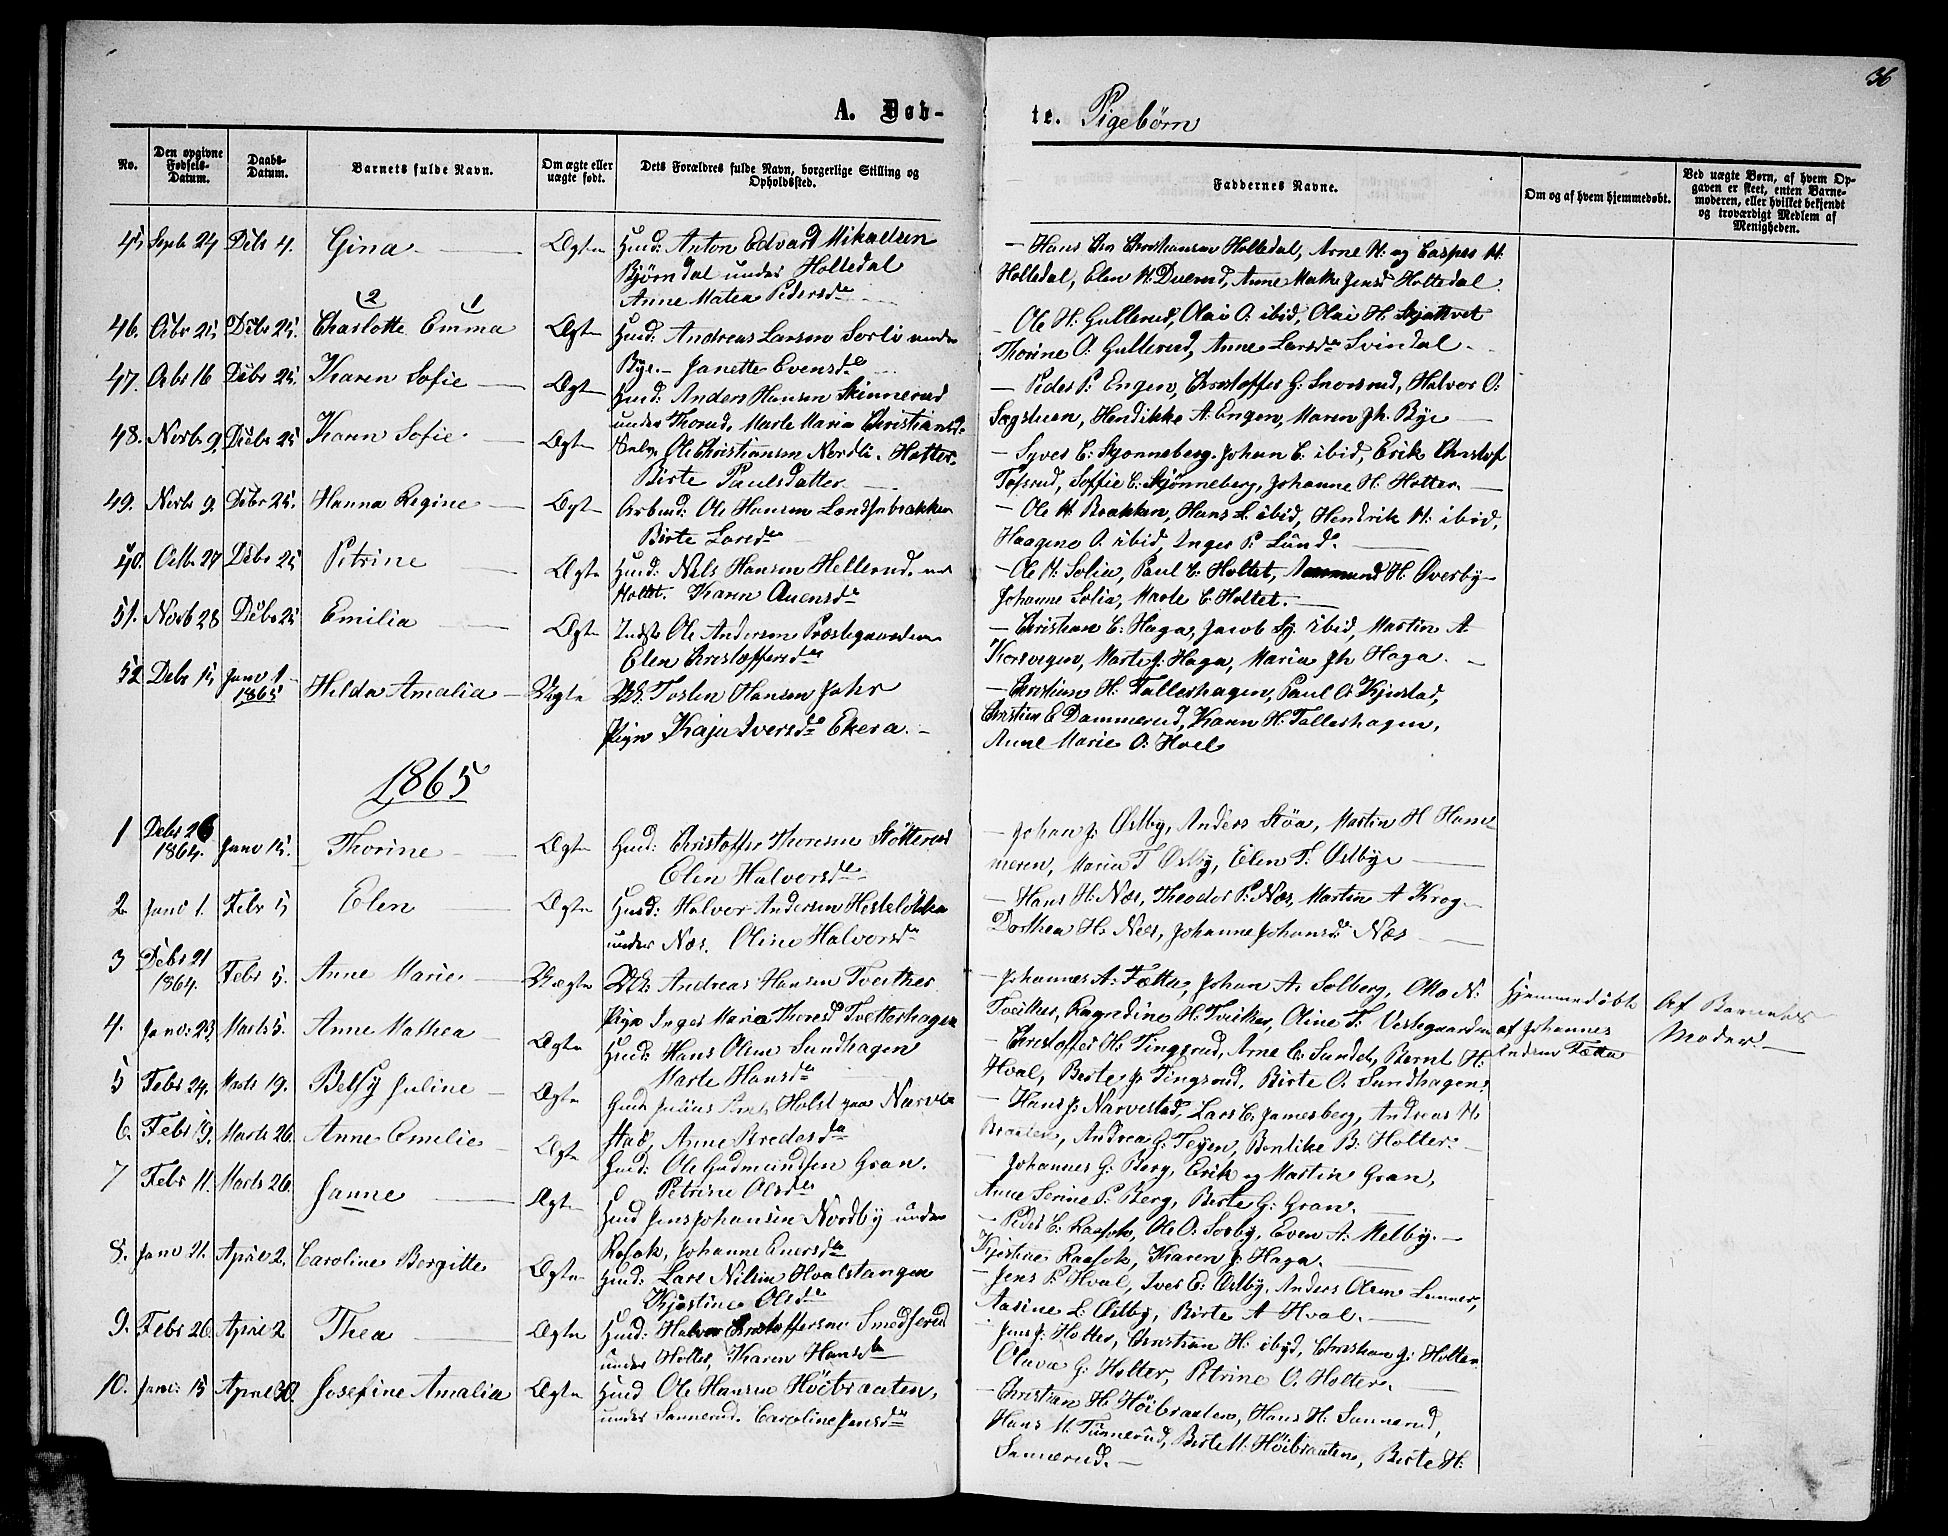 36
A. Døb-
te. Pigebørn
No.
Den opgivne Fødsels-Datum.
Daabs-Datum.
Barnets fulde Navn.
Om ægte eller uægte født.
Dets Forældres fulde Navn, borgerlige Stilling og Opholdssted.
Faddernes Navne.
Om og af hvem hjemmedøbt.
Ved uægte Børn, af hvem Opgaven er skeet, enten Barnemoderen, eller hvilket bekjendt og troværdigt Medlem af Menigheden.
45 Septb 24 Debr 4. Gina Ægte Husd: Anton Edvard Mikaelsen
Bjørndal under Holtedal
Anne Matea Pedersdr
— Hans Chr Christiansen Holtedal, Arne H: og Casper H:
Holtedal, Elen H: Duerud, Anne Mathe Jensd Holtedal
46. Octbr 25 Debr 25. Charlotte Emma Ægte Husd: Andreas Larsen Sorli under
Bye. — Janette Evensdr
— Ole H: Gullerud, Olai O. ibid, Olai H. Skjattvet
Thorine O: Gullerud, Anne Larsdr Svindal
47. Octbr 16 Debr 25. Karen Sofie Ægte Husd: Anders Hansen Skinnerud
under Thorud, Marte Maria Christiansdr
— Peder P: Engen, Christoffer G: Snorsrud, Halvor O:
Sagstuen, Hendikke A: Engen, Maren Jh. Bye
48. Novbr 9. Debr 25 Karen Sofie Ægte Selv. Ole Christiansen Nordli. Holter.
Birte Paulsdatter
— Syver C: Skjonneberg. Johan C. ibid, Erik Christof
Tofsrud, Soffie C: Skjønneberg, Johanne H: Holter
49. Novbr 9. Debr 25. Hanna Regine Ægte Arbeid: Ole Hansen Landsebrakken
Birte Larsdr
— Ole H: Brakken, Hans L. ibid, Hendrik H: ibid,
Haagine O. ibid, Inger P. Lund.
50. Octbr 27 Debr 25 Petrine Ægte Husd: Nils Hansen Hellerud. under
Holtet. Karen Auensdr
— Ole H: Solia, Paul C: Holtet, Aamund H: Øverby
Johanne Solia, Marte C: Holtet.
51. Novb 28 Debr 25 Emilia Ægte Indst: Ole Andersen Præstegaarden
Elen Christoffersdr
— Christian C: Haga, Jacob Sy. ibid, Martin A.
Korsvegen, Marte J: Haga, Maria Jh Haga.
52 Debr 15 Janr 1 1865 Hilda Amalia Uægte UK: Torsten Hansen Jahr
Pigen Kaja Iversdr Ekera.
— Christian H: Tallershagen, Paul O: Kjerstad,
Christian E Dammerud, Karen H: Tallershagen,
Anne Marie O: Hoel
1865
1 Debr 26 1864. Janr 15. Thorine Ægte Husd: Christoffer Thoresen Støtterud
Elen Halvorsdr
— Johan J: Østby, Anders Støa, Martin H Ham-
meren, Maria T Østby, Elen T: Østbye
2 Janr 1. Febr 5 Elen Ægte Husd: Halvor Andersen Hesteløkka
under Næs. Oline Halvorsdr
— Hans H: Næs, Theodor P: Næs, Martin A Krog
Dorthea H: Næs, Johanne Johansd: Næs
3 Debr 21 1864. Febr 5. Anne Marie Uægte UK: Andreas Hansen Tveither
Pign Inger Maria Thoresd Tvetterhagen
— Johannes A: Fætta, Johan A: Solberg, Otto N:
Tveither, Ragndine H: Tveither, Oline T: Vestgaarden
Hjemmedøbt af Johannes Anders Fætta
Af Barnets Moder.
4. Janr: 23 Marts 5. Anne Mathea Ægte Husd: Hans Olsen Sundhagen
Marte Hansdr
— Christoffer H: Tingsrud, Arne C: Sundet, Bernt H:
Hval, Berte J: Tingsrud, Birte O. Sundhagen.
5 Febr 24. Marts 19. Betsy Juline Ægte Gaard Julius Holst paa Narve-
stad, Anne Bredesdr
— Hans J: Narvestad, Lars C. Jamesberg, Andreas H:
Braaten, Andrea G: Teien, Bentike B: Holter.
6. Febr 19. Marts 26. Anne Emelie Ægte Husd: Ole Gudmundsen Gran.
Petrine Olsdr
— Johannes G: Berg, Erik og Martin Gran,
Anne Serine P: Berg, Berte G: Gran.
7 Febr 11. Marts 26. Janne Ægte Husd Jens Johansen Nordby under
Rosok, Johanne Enersdr
— Peder C. Raasok, Ole O: Sorby, Even A: Melby.
Kjerstine Raasok, Karen J: Haga.
8. Janr 21. April 2. Caroline Bergitte Ægte Husd: Lars Nilsen Hvalstangen
Kjerstine Olsdr
— Jens P: Hval, Iver E: Østby, Anders Olsen Lunner,
Aasine L: Østby, Birte A Hval.
9. Febr 26. April 2 Thea Ægte Husd: Halvor Christoffersen Smedserud
under Holter, Karen Hansdr
— Jens J: Holter, Christian H: ibid, Christian G: Holter
Olava G: Holter, Petrine O. Holter.
10. Janr: 15 April 30. Josefine Amalia Ægte Husd Ole Hansen Höibraaten,
under Sannerud. Caroline Jensdr
— Christian H: Höibraaten, Hans H: Sannerud,
Hans M: Tunnerud, Berte M: Höibraaten, Birte H:
Sannerud.